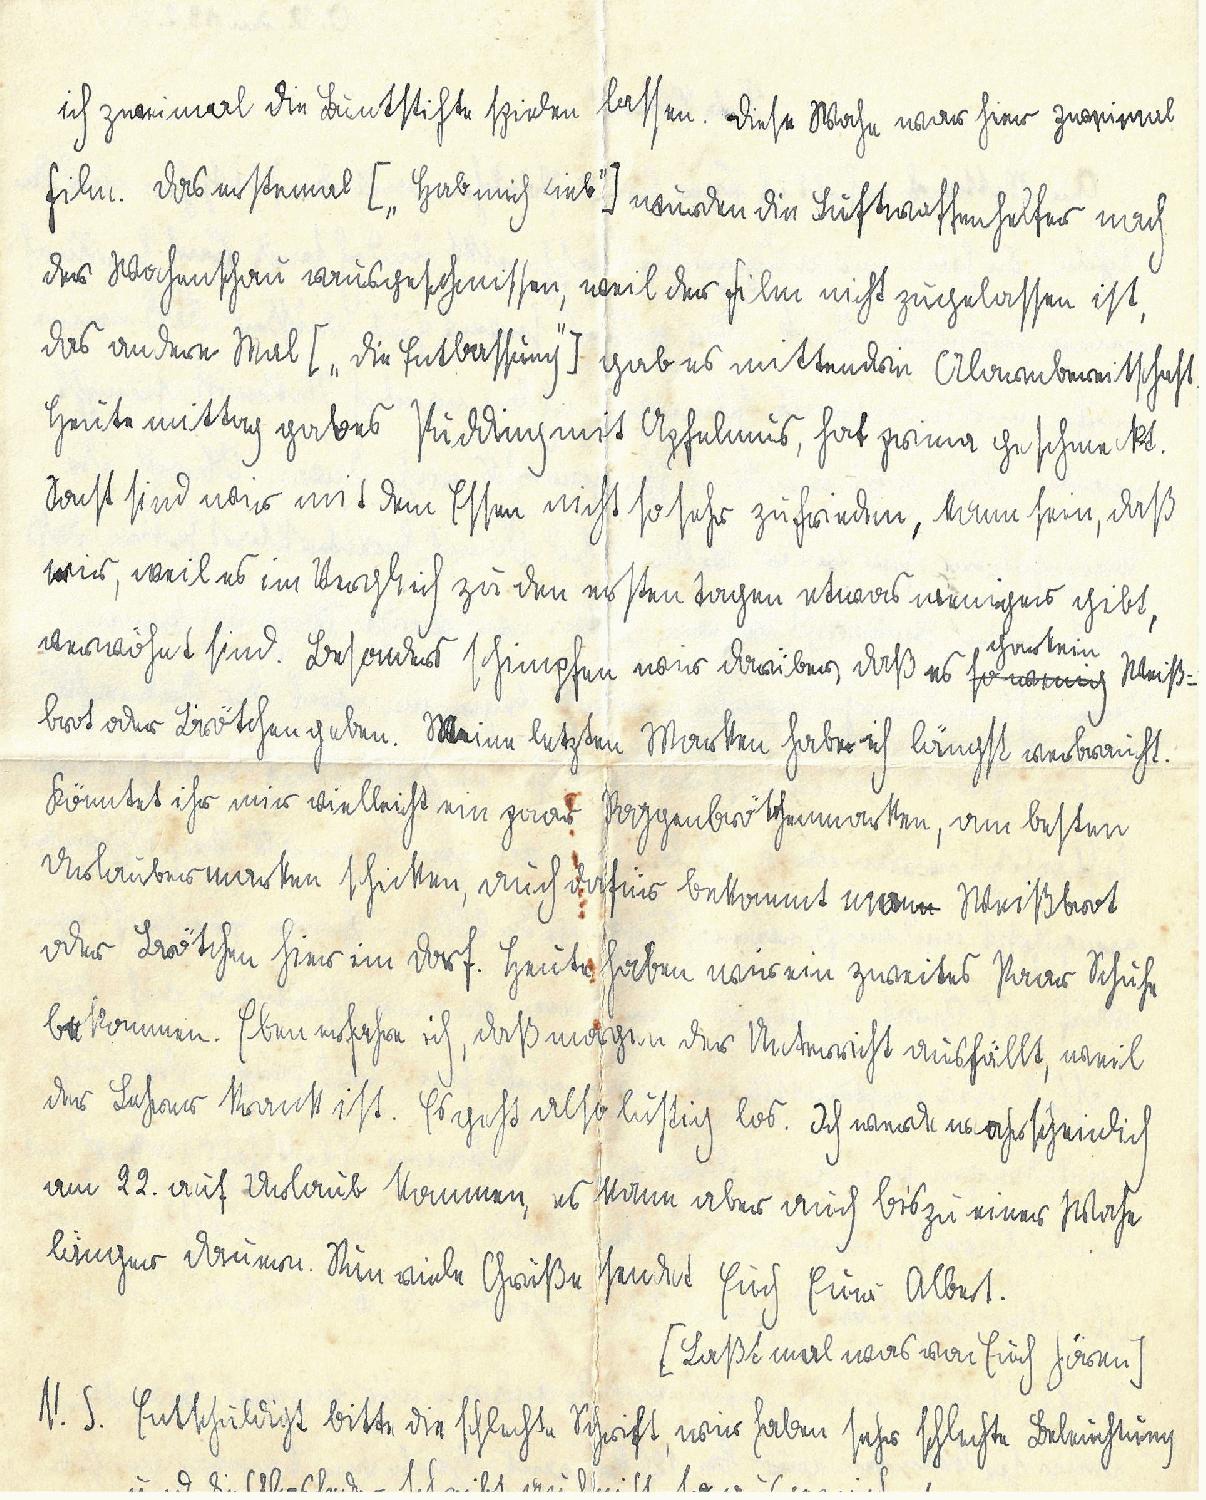 ich zweimal die Buntstifte spielen lassen. Diese Woche war hier zweimal
Film. Das erstemal [„Hab mich lieb"] wurden die Luftwaffenhelfer nach
der Wochenschau rausgeschmissen, weil der Film nicht zugelassen ist,
das andere Mal [„Die Entlassung"] gab es mittendrin Alarmbereitschaft.
Heute mittag gab es Pudding mit Apfelmus, hat prima geschmeckt.
Sonst sind wir mit dem Essen nicht so sehr zufrieden, kann sein, daß
wir, weil es im Vergleich zu den ersten Tagen etwas weniger gibt,
verwöhnt sind. Besonders schimpfen wir darüber, daß es so wenig gar kein Weiß=
brot oder Brötchen geben. Meine letzten Marken habe ich längst verbraucht.
Könntet ihr mir vielleicht ein paar Roggenbrötchenmarken, am besten
Urlaubermarken schicken, auch dafür bekommt man Weißbrot
oder Brötchen hier im Dorf. Heute haben wir ein zweites Paar Schuhe
bekommen. Eben erfahre ich, daß morgen der Unterricht ausfällt, weil
der Lehrer krank ist. Es geht also lustig los. Ich werde wahrscheinlich
am 22. auf Urlaub kommen, es kann aber auch bis zu einer Woche
länger dauern. Nun viele Grüße sendet Euch Euer Albert.
[Laßt mal was von Euch hören]
N. S. Entschuldigt bitte die schlechte Schrift, wir haben sehr schlechte Beleuchtung